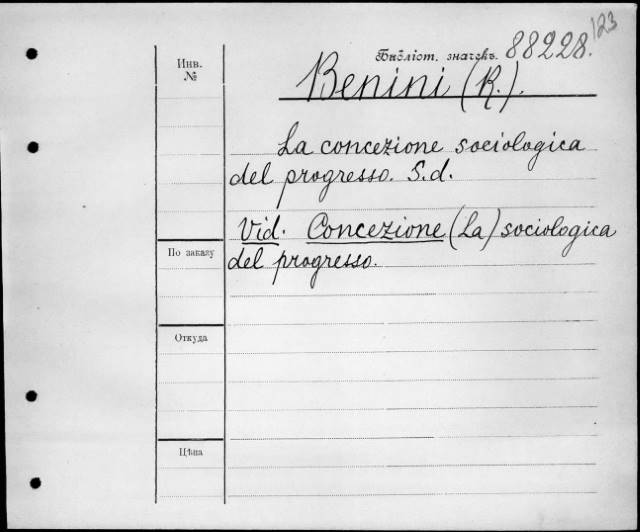 123
Инв.
№
Библіот. значекъ. 88228.
Benini (R.).
La concezione sociologica
del progresso. S.d.
Vid. Concezione (La) sociologica
del progresso.
По заказу
Откуда
Цѣна